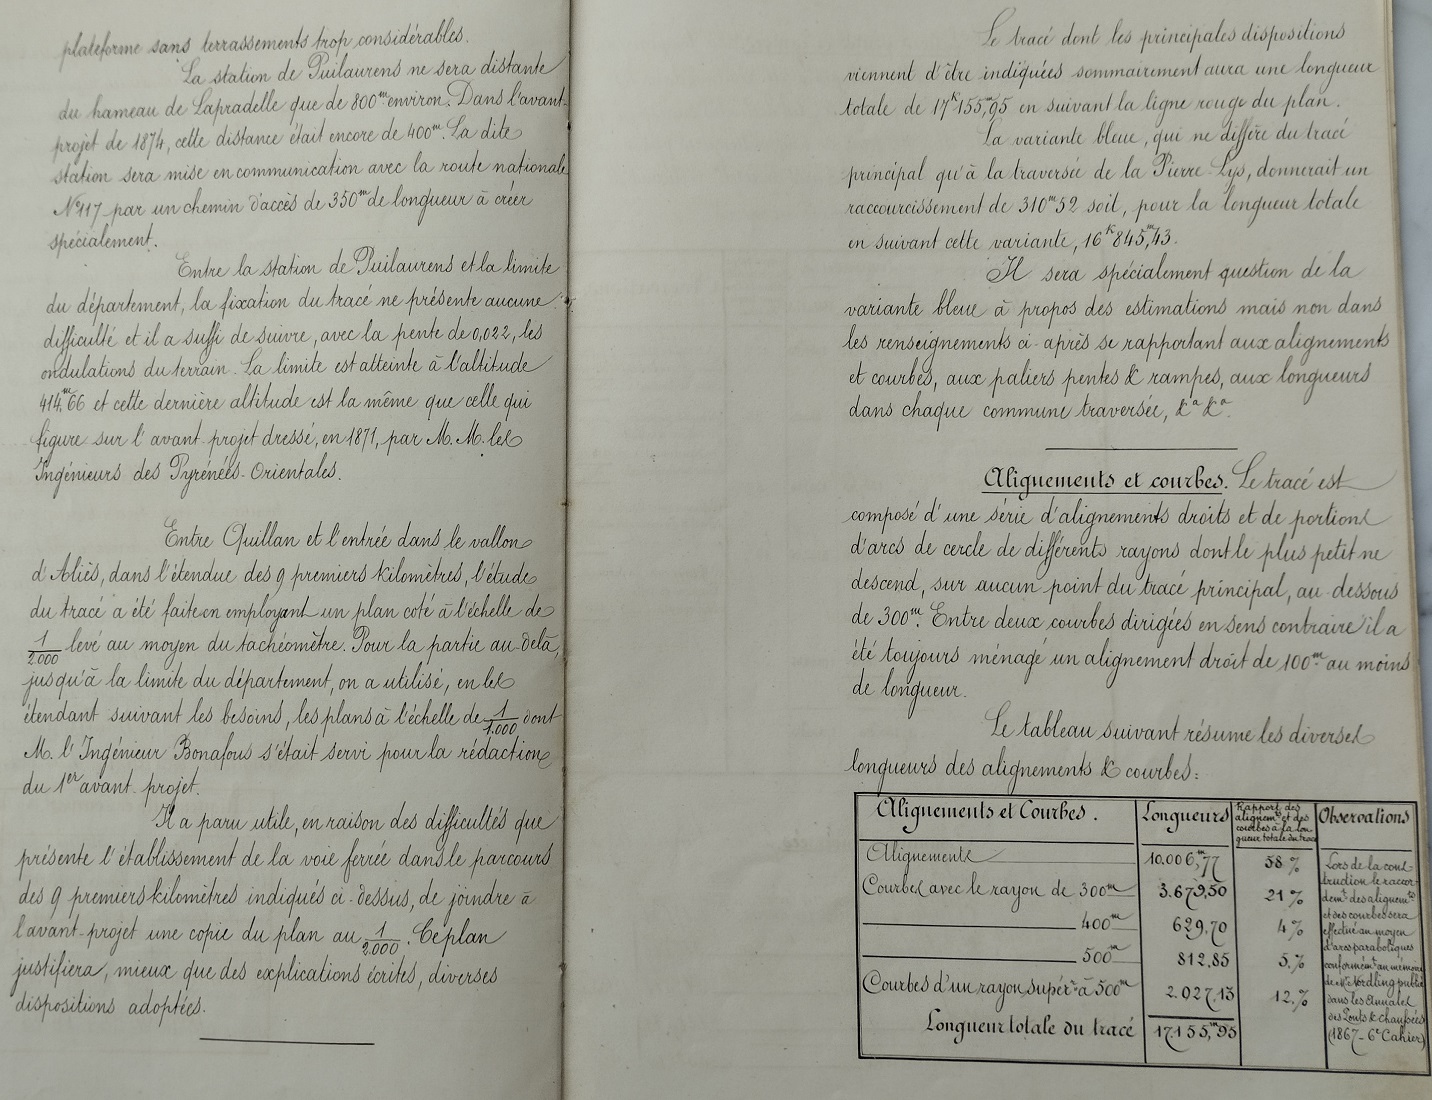 plateforme sans terrassements trop considérables.
La station de Puilaurens ne sera distante
du hameau de Lapradelle que de 800m environ. Dans l'avant-
projet de 1874, cette distance était encore de 400m. La dite
station sera mise en communication avec la route nationale
N° 117 par un chemin d'accès de 350m de longueur à créer
spécialement.
Entre la station de Puilaurens et la limite
du département, la fixation du tracé ne présente aucune
difficulté et il a suffi de suivre, avec la pente de 0,022, les
ondulations du terrain. La limite est atteinte à l'altitude
414m,66 et cette dernière altitude est la même que celle qui
figure sur l'avant-projet dressé, en 1871, par M. M. les
Ingénieurs des Pyrénées-Orientales.
Entre Quillan et l'entrée dans le vallon
d'Aliès, dans l'étendue des 9 premiers kilomètres, l'étude
du tracé a été faite en employant un plan coté à l'échelle de
1/2.000 levé au moyen du tachéomètre. Pour la partie au-delà,
jusqu'à la limite du département, on a utilisé, en les
étendant suivant les besoins, les plans à l'échelle de 1/1.000 dont
M. l'Ingénieur Bonafous s'était servi pour la rédaction
du 1er avant-projet.
Il a paru utile, en raison des difficultés que
présente l'établissement de la voie ferrée dans le parcours
des 9 premiers kilomètres indiqués ci-dessus, de joindre à
l'avant-projet une copie du plan au 1/2.000. Ce plan
justifiera, mieux que des explications écrites, diverses
dispositions adoptées.
Le tracé dont les principales dispositions
viennent d'être indiquées sommairement aura une longueur
totale de 17K155m,95 en suivant la ligne rouge du plan.
La variante bleue, qui ne diffère du tracé
principal qu'à la traversée de la Pierre-Lys, donnerait un
raccourcissement de 310m52 soit, pour la longueur totale
en suivant cette variante, 16K845m,43.
Il sera spécialement question de la
variante bleue à propos des estimations mais non dans
les renseignements ci-après se rapportant aux alignements
et courbes, aux paliers pentes & rampes, aux longueurs
dans chaque commune traversée, &a &a.
Alignements et courbes. Le tracé est
composé d'une série d'alignements droits et de portions
d'arcs de cercle de différents rayons dont le plus petit ne
descend, sur aucun point du tracé principal, au-dessous
de 300m. Entre deux courbes dirigées en sens contraire il a
été toujours ménagé un alignement droit de 100m au moins
de longueur.
Le tableau suivant résume les diverses
longueurs des alignements & courbes:
Alignements et Courbes. Longueurs Rapport des alignemts et des courbes à la longueur totale du tracé Observations
Alignements 10.006m,77 58 %
Courbes avec le rayon de 300m 3.679,50 21 %
400m 629,70 4 %
500m 812,85 5 %
Courbes d'un rayon supér. à 500m 2.027,13 12 %
Longueur totale du tracé 17.155m,95
Lors de la cons-
truction le raccor-
demt des alignemts
et des courbes sera
effectué au moyen
d'arcs paraboliques
conformémt au mémoire
de Mr Nordling publié
dans les Annales
des Ponts & Chaussées
(1867 - 6e Cahier)